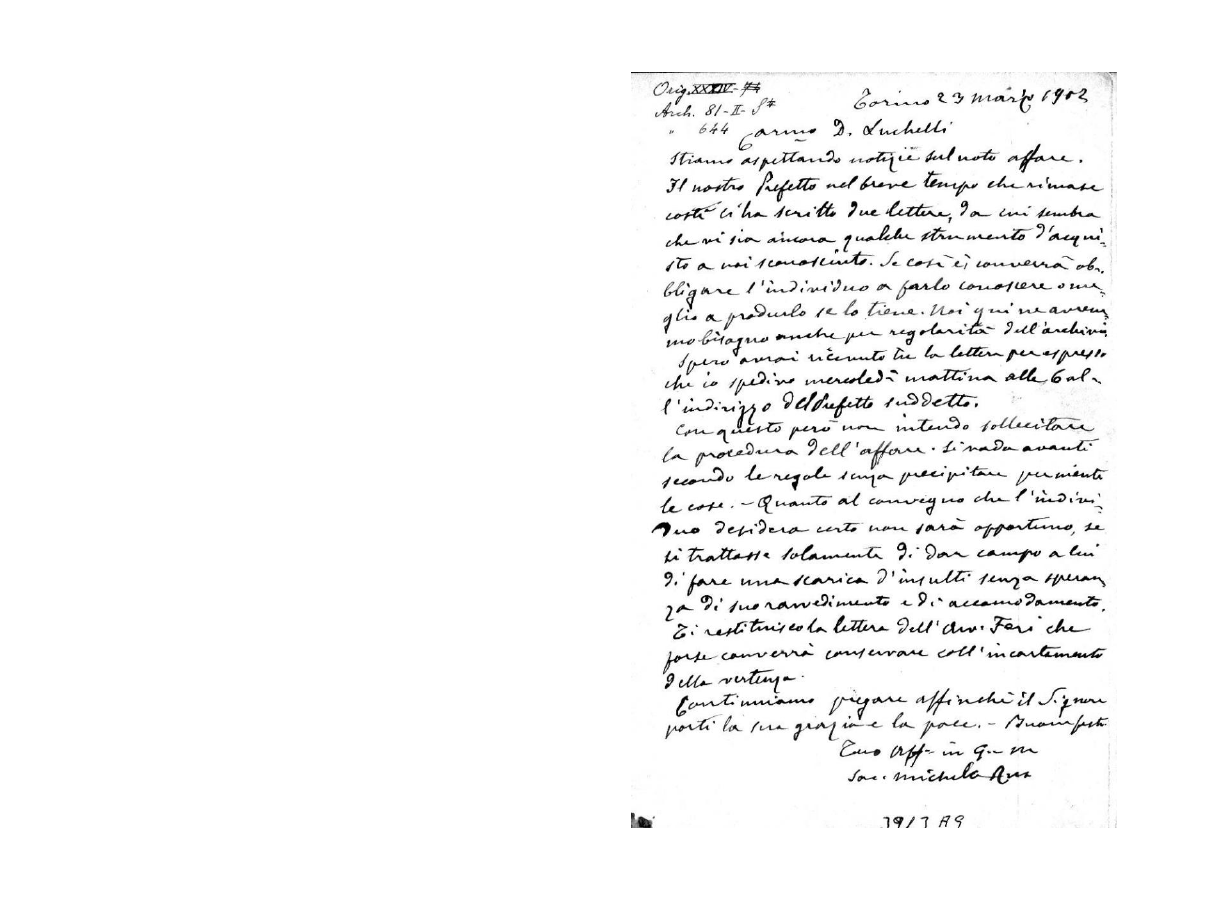 Orig. XXXIV-74
Arch. 81-II-
" 644
Torino 23 marzo 1902
Carmo D. Luchelli
Stiamo aspettando notizie sul noto affare.
Il nostro Prefetto nel breve tempo che rimase
costì ci ha scritto due lettere, da cui sembra
che vi sia ancora qualche strumento d'acqui-
sto a noi sconosciuto. Se così è, converrà ob-
bligare l'individuo a farlo conoscere o me-
glio a produrlo se lo tiene. Noi qui ne avrem
mo bisogno anche per regolarità dell'archivio
Spero avrai ricevuto tu la lettera per espresso
che io spedivo mercoledì mattina alle 6 al-
l'indirizzo del Prefetto suddetto.
Con questo però non intendo sollecitare
la procedura dell'affare. Si vada avanti
secondo le regole senza precipitare per niente
le cose. - Quanto al convegno che l'indivi-
duo desidera certo non sarà opportuno, se
si trattasse solamente di dar campo a lui
di fare una scarica d'insulti senza speran
za di suo ravvedimento e di accomodamento.
Ti restituisco la lettera dell'Avv. Feri che
forse converrà conservare coll'incartamento
della vertenza.
Continuiamo pregare affinchè il Signore
porti la sua grazia e la pace. - Buone feste
Tuo aff- in G. e M
Sac. Michele Rua